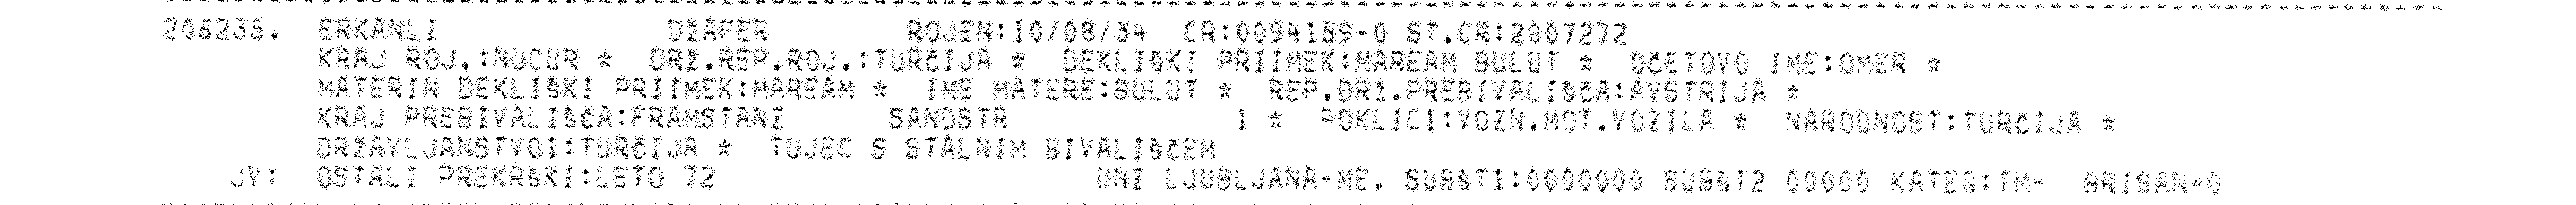 206235. ERKANLI DŽAFER ROJEN:10/08/34 CR:0094159-0 ST.CR:2007272
KRAJ ROJ.:NUCUR * DRŽ.REP.ROJ.:TURČIJA * DEKLIŠKI PRIIMEK:MAREAM BULUT * OČETOVO IME:OMER *
MATERIN DEKLIŠKI PRIIMEK:MAREAM * IME MATERE:BULUT * REP.DRŽ.PREBIVALIŠČA:AVSTRIJA *
KRAJ PREBIVALIŠČA:FRAMSTANZ SANDSTR 1 * POKLIC1:VOZN.MOT.VOZILA * NARODNOST:TURČIJA *
DRŽAVLJANSTVO1:TURČIJA * TUJEC S STALNIM BIVALIŠČEM
JV: OSTALI PREKRŠKI:LETO 72 UNZ LJUBLJANA-ME. SUBŠT1:0000000 SUBŠT2 00000 KATEG:TM- BRISAN=0